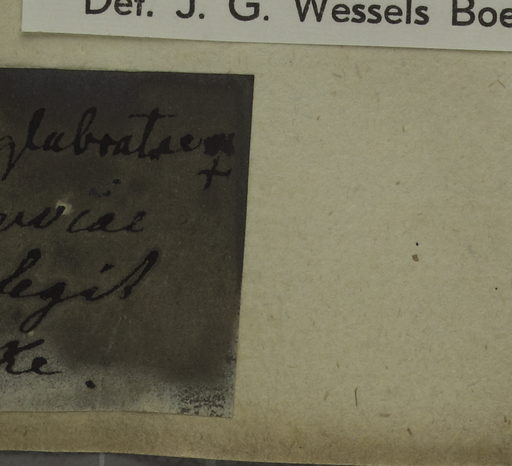 Det. J. G. Wessels Boe
glabratum
+
erviae
legit
ke.